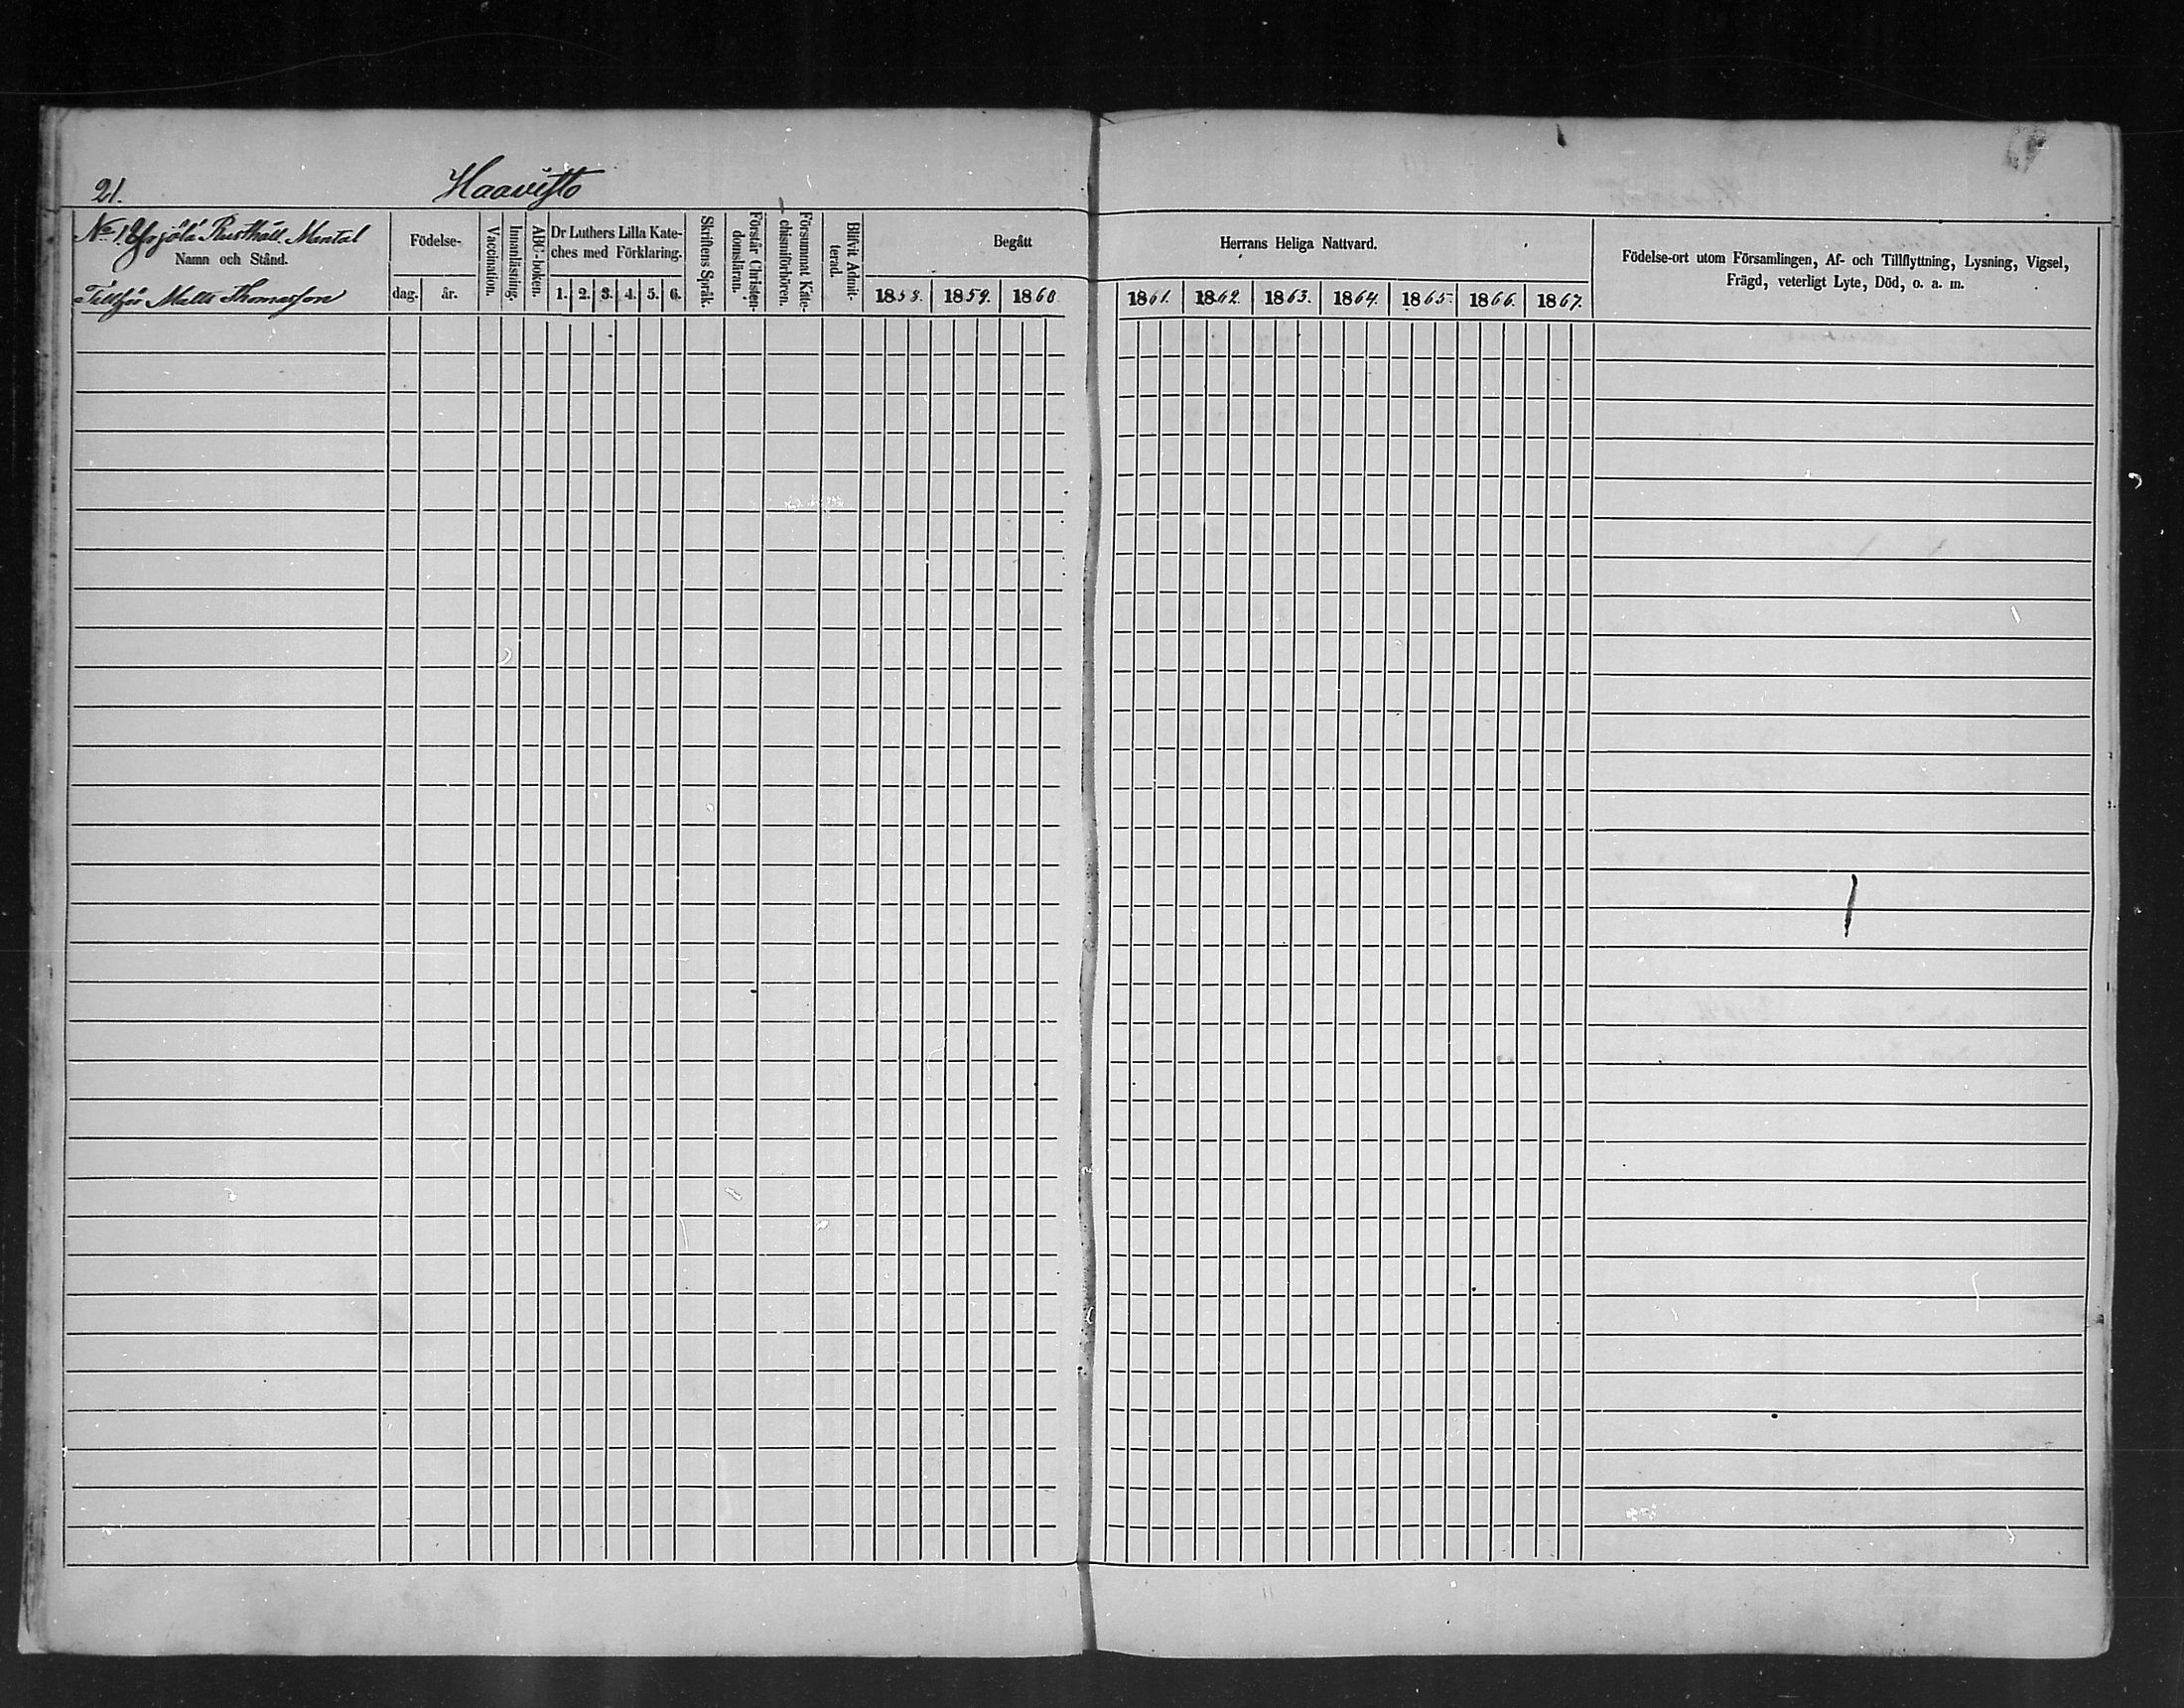 21. Haavisto
Rusthåll. Mantal
Namn och Stånd.
Tillhör Matts Thomasson
Födelse-
dag. år.
Vaccination.
Innanläsning.
ABC-boken.
Dr Luthers Lilla Kate-
ches med Förklaring.
1. 2. 3. 4. 5. 6.
Skriftens Språk.
Förstår Christen-
domsläran.
Försummat Kate-
chismiförhören.
Blifvit Admit-
terad.
Begått
1858. 1859. 1860
Herrans Heliga Nattvard.
1861. 1862. 1863. 1864. 1865. 1866. 1867.
Födelse-ort utom Församlingen, Af- och Tillflyttning, Lysning, Vigsel,
Frägd, veterligt Lyte, Död, o. a. m.